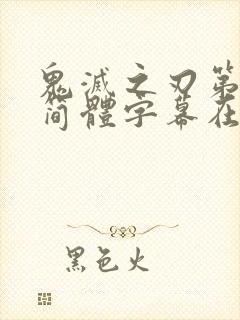 鬼滅之刃第
简體字幕在
黑色火